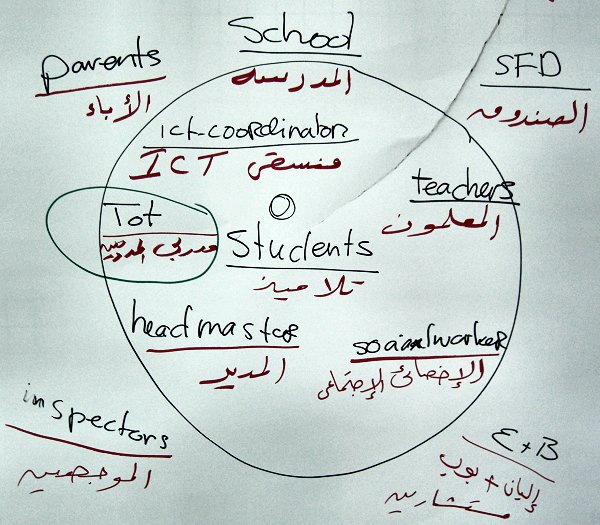 School
المدرسه
parents
الأباء
SFD
الصندوق
ict-coordinators
منسقى ICT
teachers
المعلمون
Tot
مدربي المدربين
Students
تلاميذ
headmaster
المدير
social worker
الإخصائى الإجتماعى
inspectors
الموجهين
E+B
إليان + بوب
مستشارين